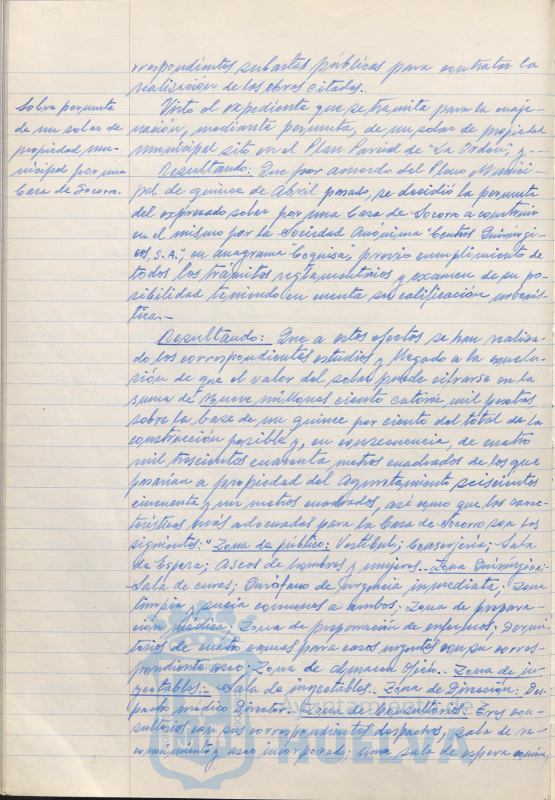 rrespondientes subastas públicas para contratar la
realización de las obras citadas.
Sobre permuta
de un solar de
propiedad mu-
nicipal por una
Casa de Socorro.
Visto el expediente que se tramita para la enaje-
nación, mediante permuta, de un solar de propiedad
municipal sito en el Plan Parcial de "La Orden", y ---
Resultando: Que por acuerdo del Pleno Munici-
pal de quince de Abril pasado, se decidió la permuta
del expresado solar por una Casa de Socorro a construir
en el mismo por la Sociedad Anónima "Centros Quirúrgi-
cos, S.A.", en anagrama "Cequisa", previo cumplimiento de
todos los trámites reglamentarios y examen de su po-
sibilidad teniendo en cuenta su calificación urbanís-
tica.-
Resultando: Que a estos efectos se han realiza-
do los correspondientes estudios y llegado a la conclu-
sión de que el valor del solar puede cifrarse en la
suma de Nueve millones ciento catorce mil pesetas
sobre la base de un quince por ciento del total de la
construcción posible y, en consecuencia, de cuatro
mil trescientos cuarenta metros cuadrados de los que
pasarían a propiedad del Ayuntamiento seiscientos
cincuenta y un metros cuadrados, así como que las carac-
terísticas más adecuadas para la Casa de Socorro son las
siguientes: "Zona de público: Vestíbulo; Conserjería; Sala
de Espera; Aseos de hombres y mujeres.- Zona Quirúrgica:
Sala de curas; Quirófano de urgencia inmediata; Zona
limpia y sucia comunes a ambos; Zona de prepara-
ción médica; Zona de preparación de enfermos; Dormi-
torios de cuatro camas para casos urgentes con su corres-
pondiente aseo; Zona de almacén y .- Zona de in-
yectables.- Sala de inyectables.- Zona de Dirección: Des-
pacho médico Director.- Zona de Consultorios: Tres con-
sultorios con sus correspondientes despachos, sala de re-
conocimiento y aseo incorporado una sala de espera común,
Ayuntamiento de
HUELVA